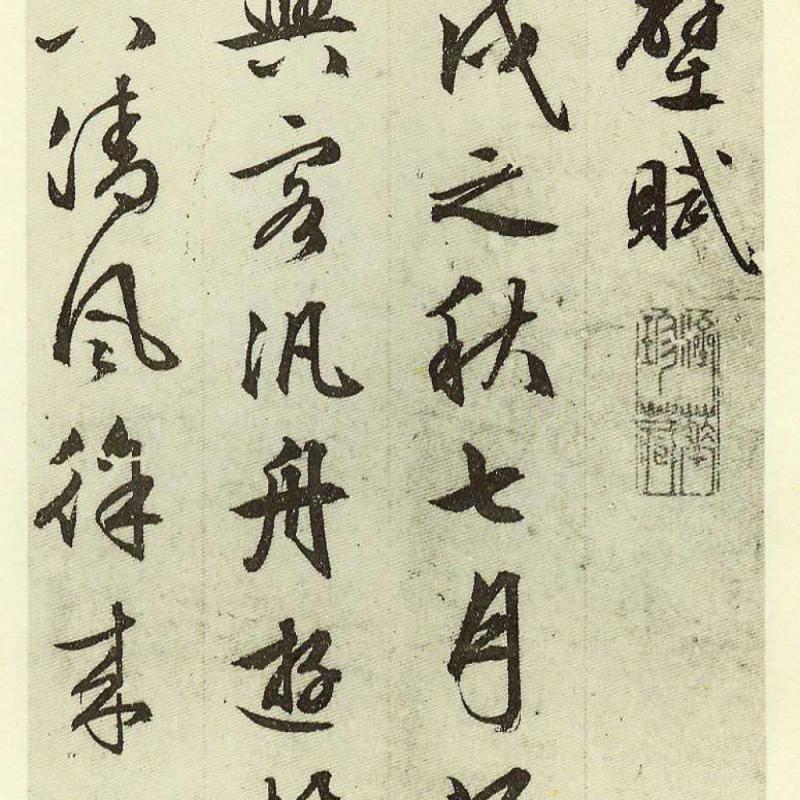 壁賦
戌之秋七月
與客汎舟遊
清風徐來
珍藏